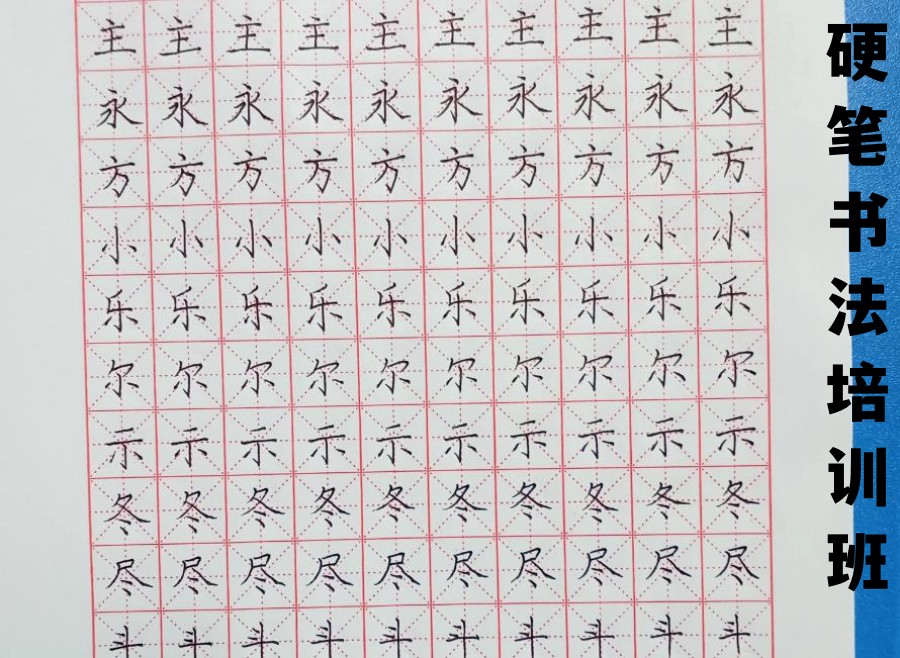 主主主主主主主主主主
永永永永永永永永永永
方方方方方方方方方方
小小小小小小小小小小
乐乐乐乐乐乐乐乐乐乐
尔尔尔尔尔尔尔尔尔尔
示示示示示示示示示示
冬冬冬冬冬冬冬冬冬冬
尽尽尽尽尽尽尽尽尽尽
斗斗斗斗斗斗斗斗斗斗
硬笔书法培训班